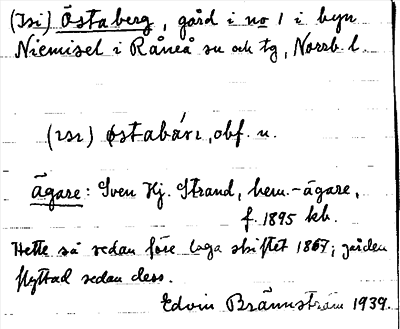 (Isi) Östaberg, gård i no 1 i byn
Niemisel i Råneå sn och tg, Norrb. l.
(ɪsɪ) østabárɪ, obf. n.
Ägare: Sven Hj. Strand, hem.-ägare,
f. 1895 kb.
Hette så redan före laga skiftet 1867; gården
flyttad sedan dess.
Edvin Brännström 1939.